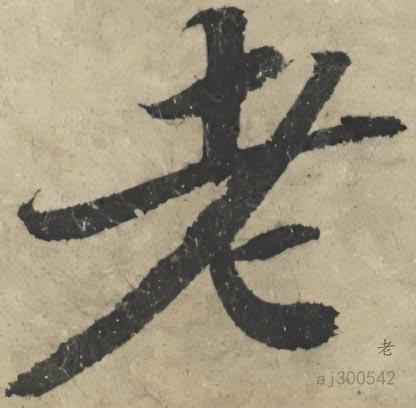 老
老
aj300542